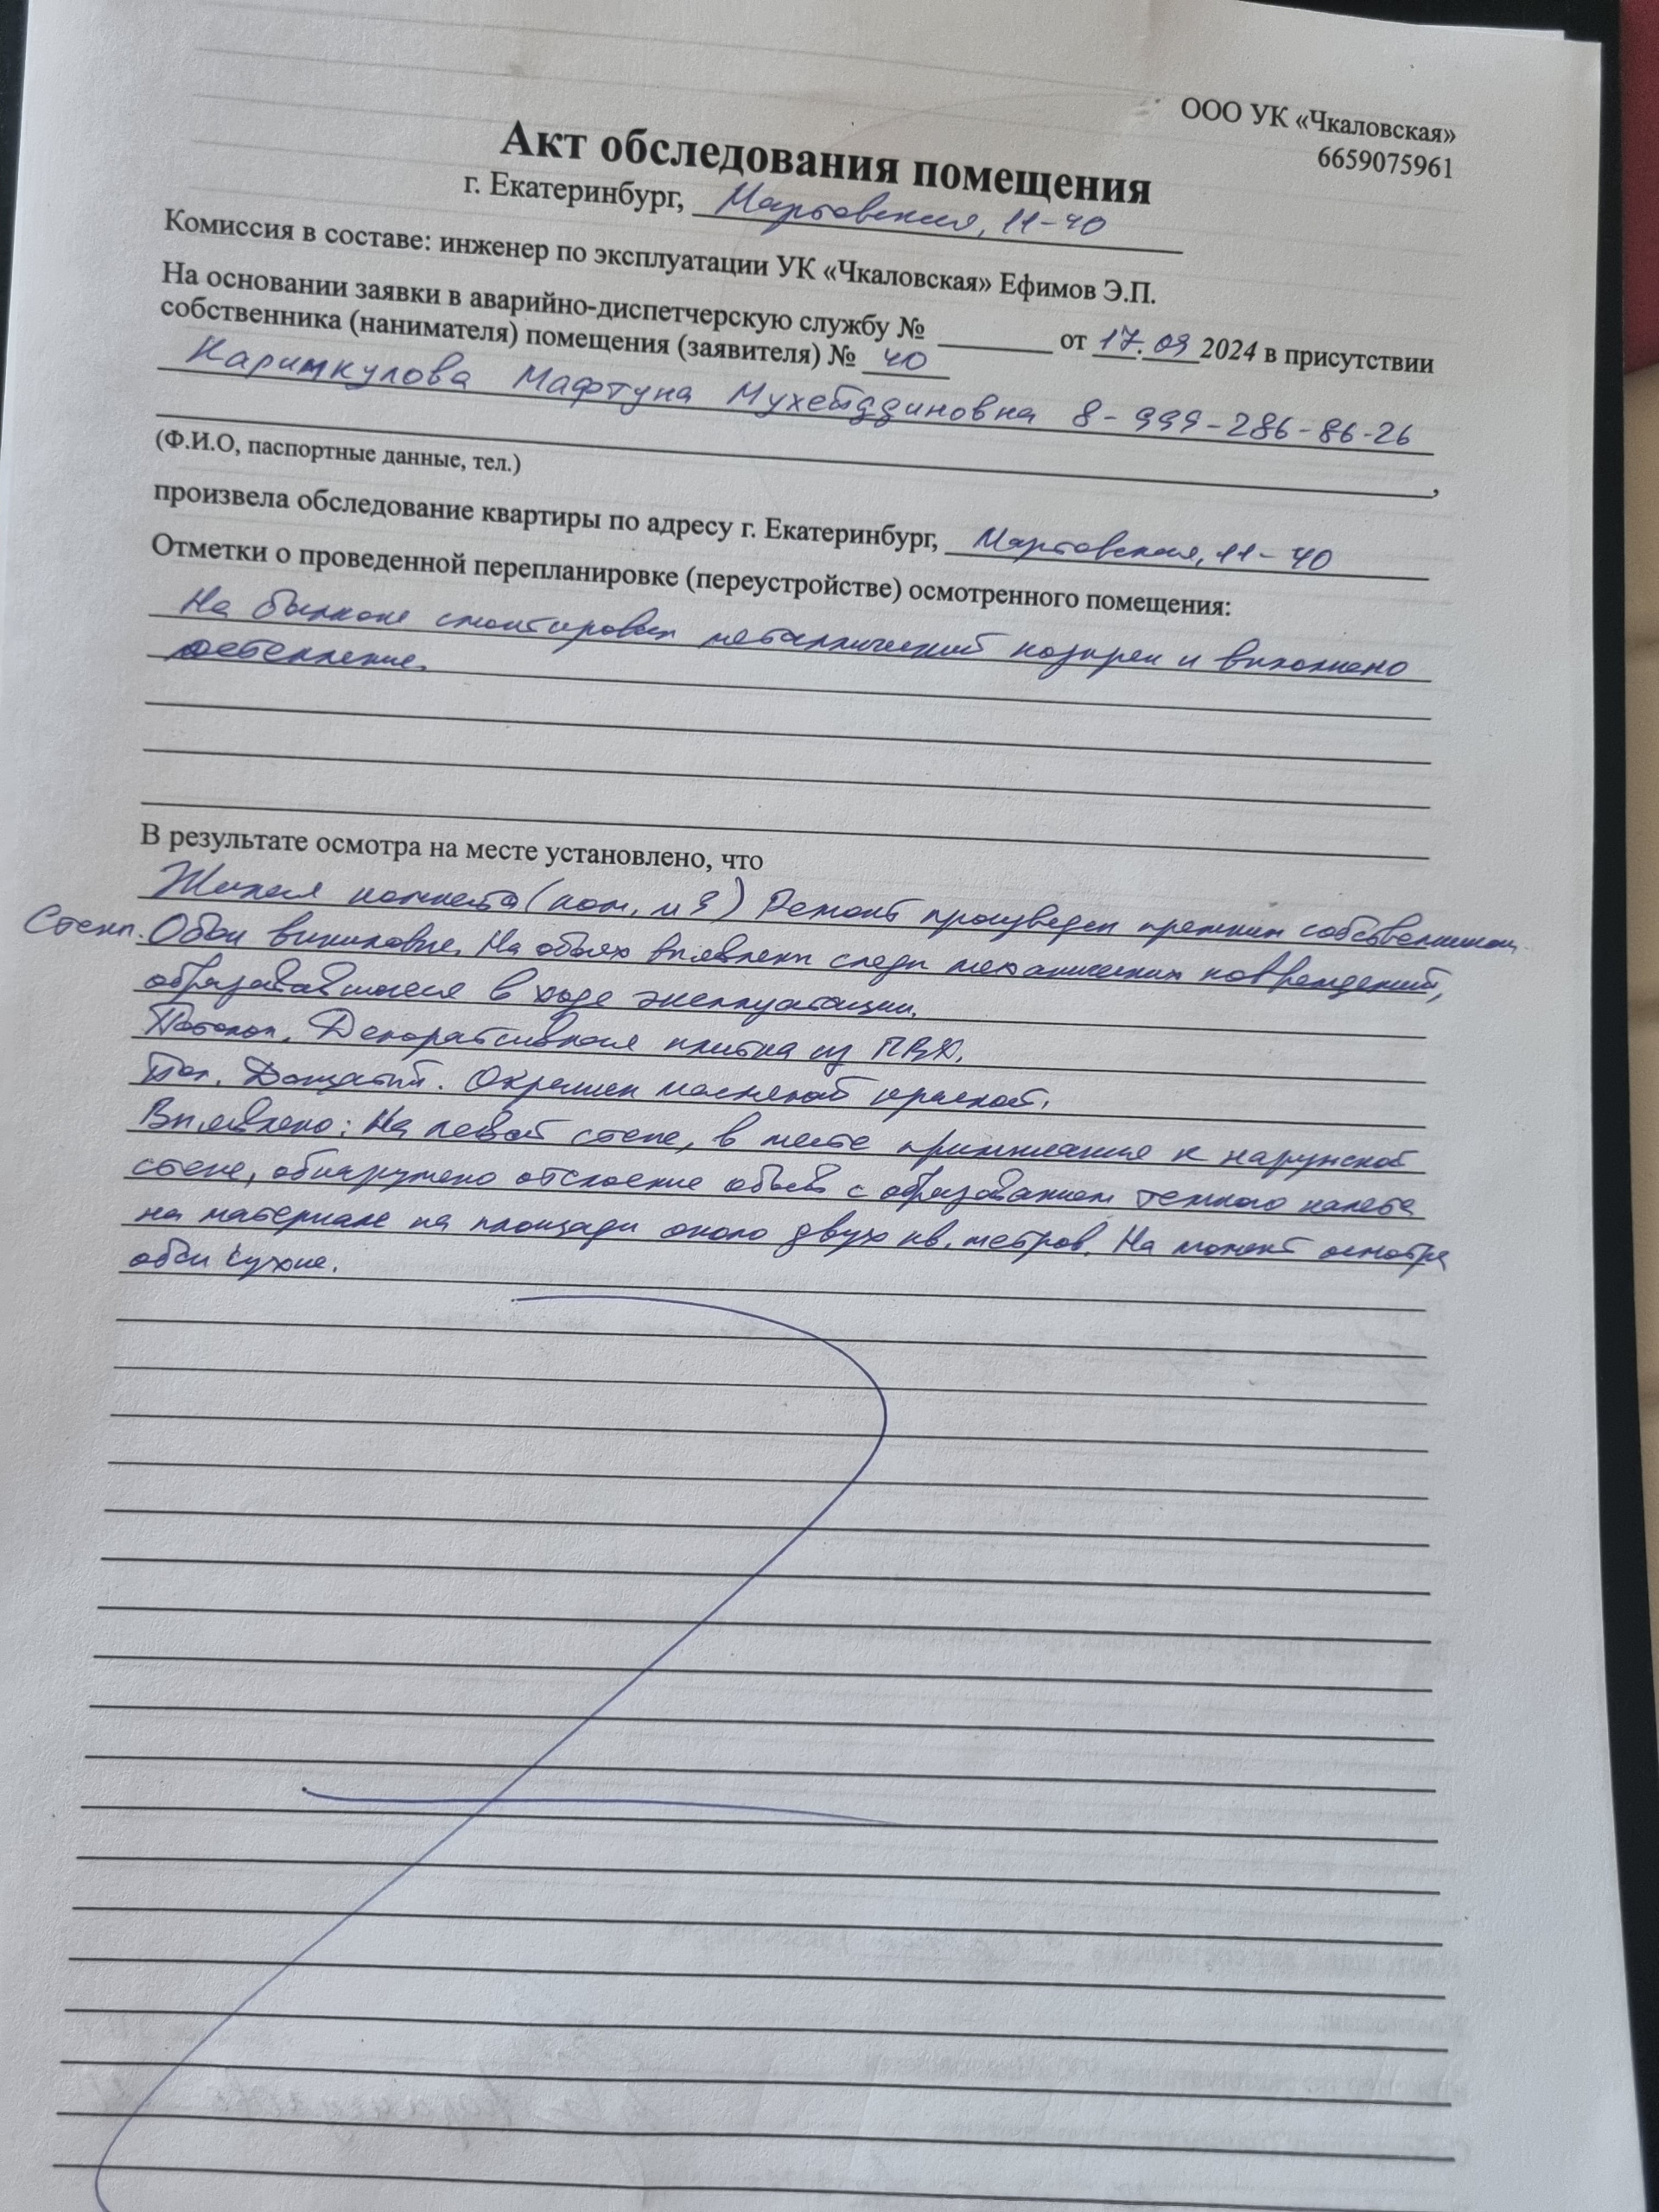 ООО УК «Чкаловская»
6659075961
Акт обследования помещения
г. Екатеринбург, Мартовская, 11-40
Комиссия в составе: инженер по эксплуатации УК «Чкаловская» Ефимов Э.П.
На основании заявки в аварийно-диспетчерскую службу № ________ от 17.09 2024 в присутствии
собственника (нанимателя) помещения (заявителя) № 40
Каримкулова Мафтуна Мухейддиновна 8-999-286-86-26
(Ф.И.О, паспортные данные, тел.)
произвела обследование квартиры по адресу г. Екатеринбург, Мартовская, 11-40
Отметки о проведенной перепланировке (переустройстве) осмотренного помещения:
На балконе смонтирован металлический козырек и выполнено
остекление.
В результате осмотра на месте установлено, что
Жилая комната (пом. №9) Ремонт произведен прежним собственником
Стены. Обои виниловые. На обоях выявлены следы механических повреждений,
образовавшиеся в ходе эксплуатации.
Потолок. Декоративная плитка из ПВХ.
Пол. Дощатый. Окрашен масляной краской.
Выявлено: На левой стене, в месте примыкания к наружной
стене, обнаружено отслоение обоев с образованием темного налета
на материале на площади около двух кв. метров. На момент осмотра
обои сухие.